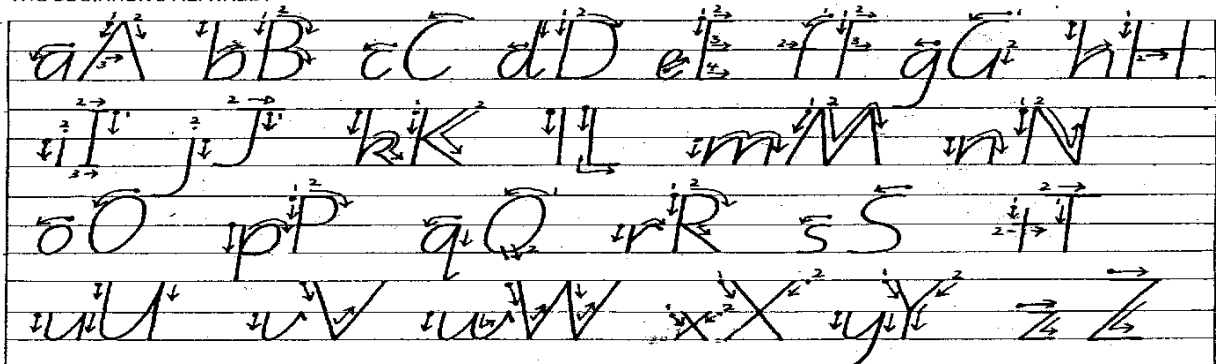 aA bB cC dD eE fF gG hH
iI jJ kK lL mM nN
oO pP qQ rR sS tT
uU vV wW xX yY zZ